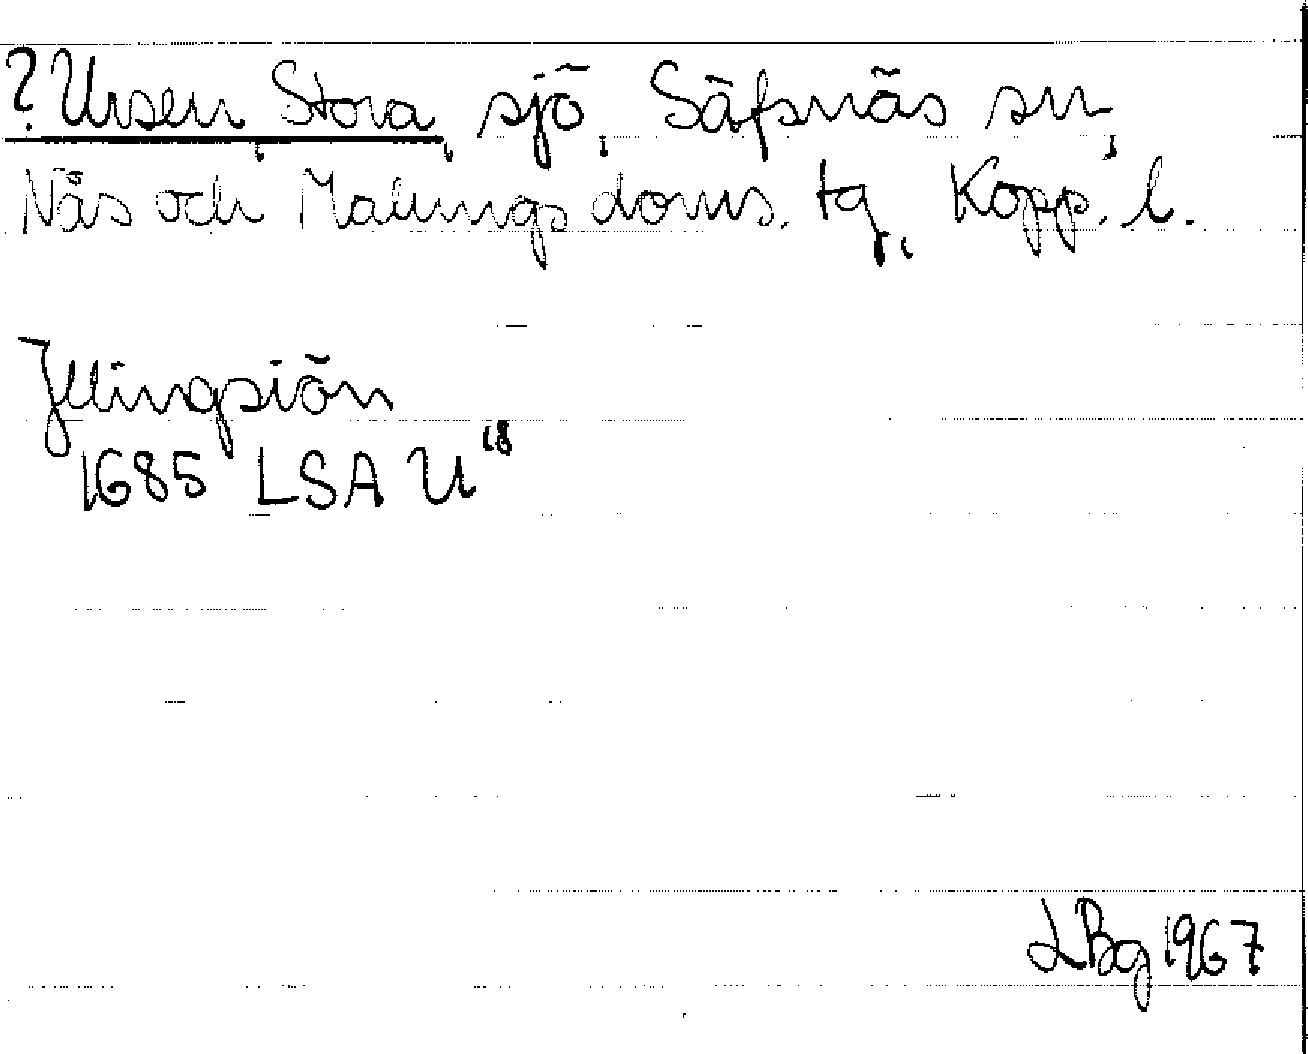 ? Ursen, Stora, sjö, Säfsnäs sn,
Nås och Malungs doms. tg, Kopp. l.
Jllingsiön
1685 LSA U 18
LBg 1967